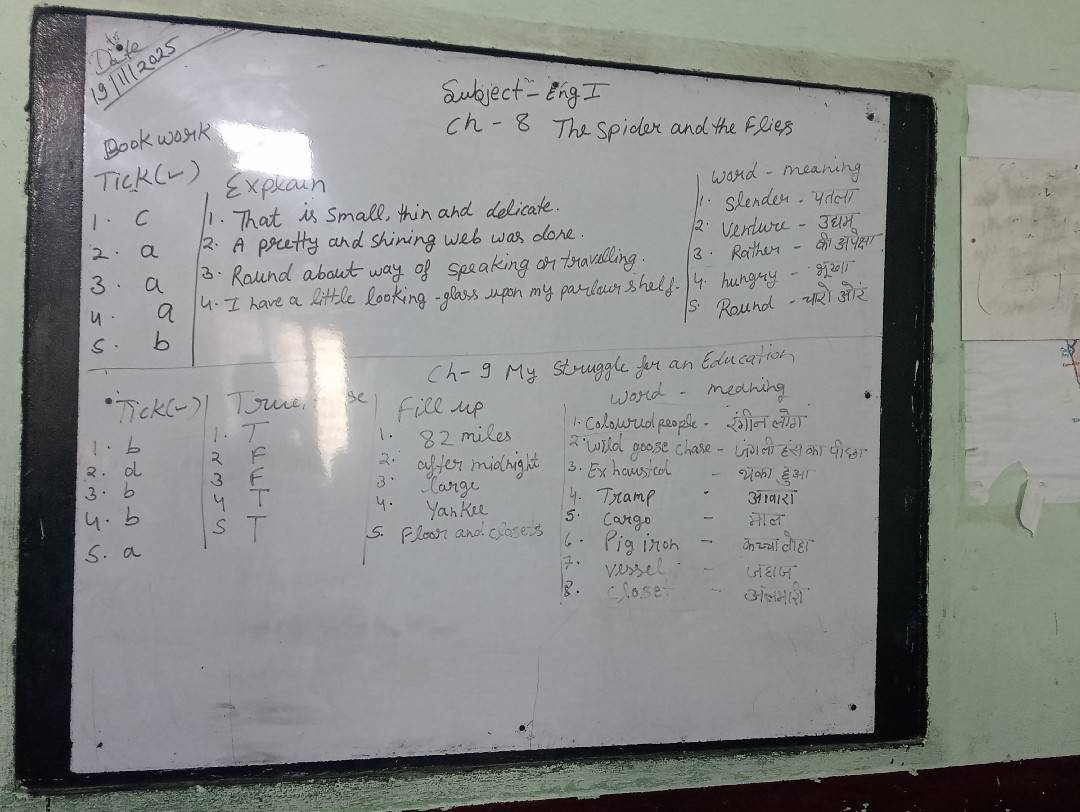 Date
19/11/2025
Subject - Eng I
Ch - 8 The Spider and the Flies
Book work
Tick (✓)
1. c
2. a
3. a
4. a
5. b
Explain
1. That is small, thin and delicate.
2. A pretty and shining web was done.
3. Round about way of speaking or travelling.
4. I have a little looking-glass upon my parlour shelf.
word - meaning
1. Slender - पतला
2. Venture - उद्यम
3. Rather - की अपेक्षा
4. hungry - भूखा
5. Round - चारो ओर
Ch - 9 My Struggle for an Education
Tick (✓)
1. b
2. d
3. b
4. b
5. a
True,
1. T
2 F
3 F
4 T
5 T
Fill up
1. 82 miles
2. after midnight
3. large
4. Yankee
5. Floor and closets
word - meaning
1. Coloured people - रंगीन लोग
2. Wild goose chase - जंगली हंस का पीछा
3. Exhausted - थका हुआ
4. Tramp - आवारा
5. Cargo - माल
6. Pig iron - कच्चा लोहा
7. vessel - जहाज
8. Closet - अलमारी